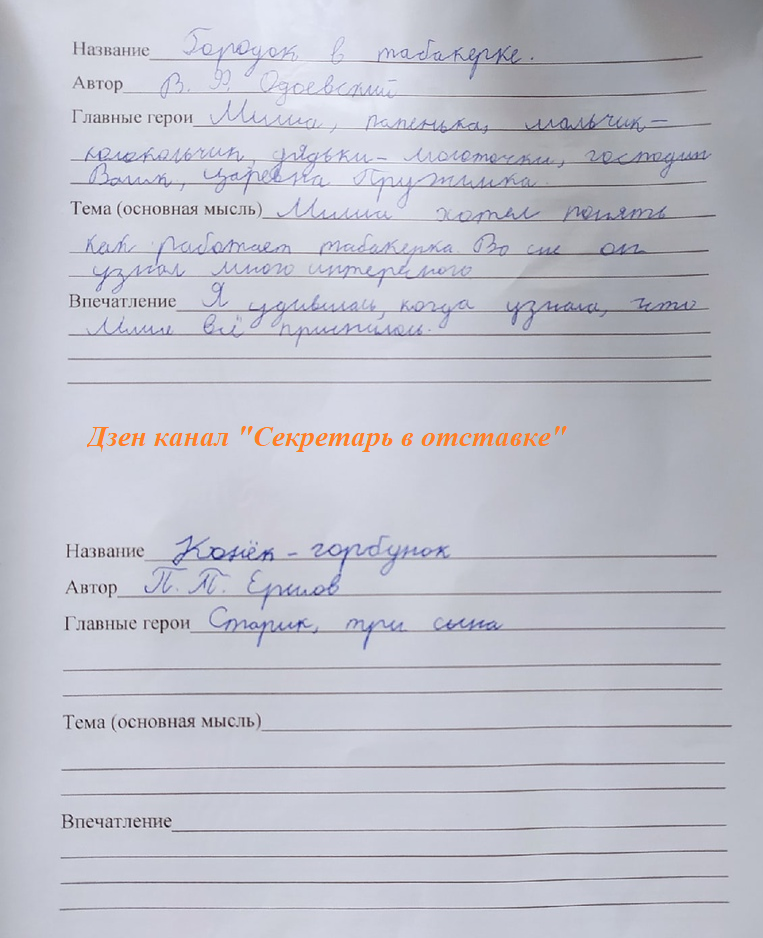 Название Городок в табакерке.
Автор В. Ф. Одоевский
Главные герои Миша, папенька, мальчик-
колокольчик, дядьки-молоточки, господин
Валик, царевна Пружинка.
Тема (основная мысль) Миша хотел понять
как работает табакерка. Во сне он
узнал много интересного
Впечатление Я удивилась, когда узнала, что
Мише всё приснилось.
Дзен канал "Секретарь в отставке"
Название Конёк-горбунок
Автор П. П. Ершов
Главные герои Старик, три сына
Тема (основная мысль)
Впечатление